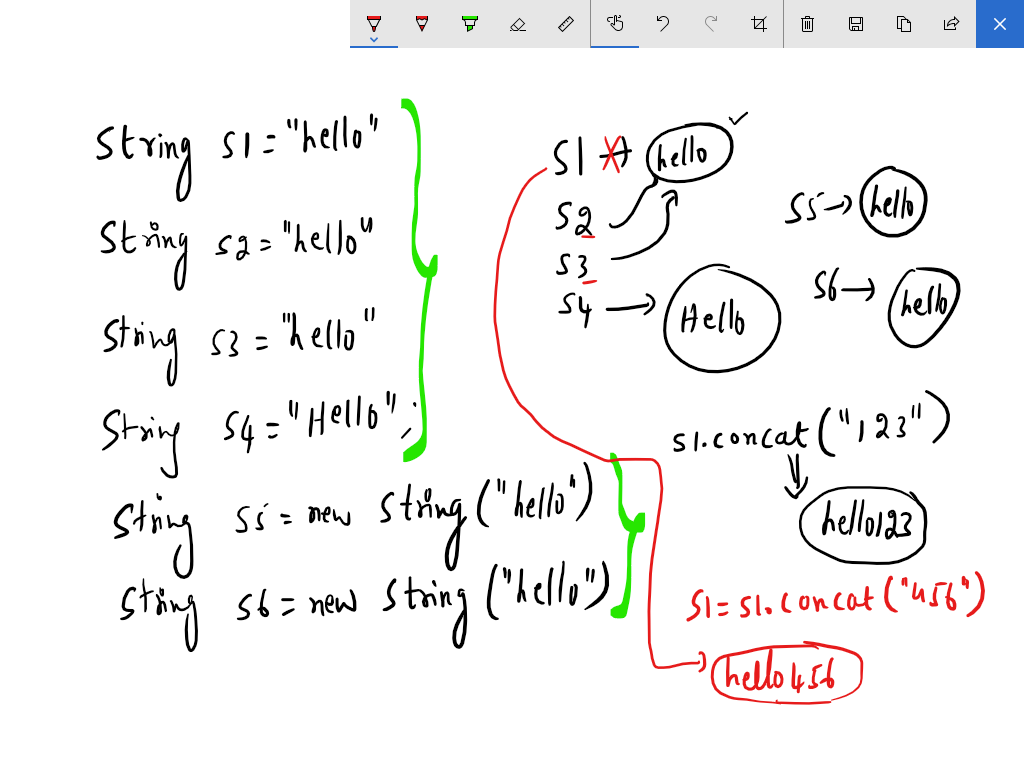 String s1 = "hello"
String s2 = "hello"
String s3 = "hello"
String s4 = "Hello";
String s5 = new String("hello")
String s6 = new String("hello")
S1 → hello
S2
S3
S4 → Hello
S5 → hello
S6 → hello
s1.concat("123")
hello123
S1 = S1.concat("456")
hello456